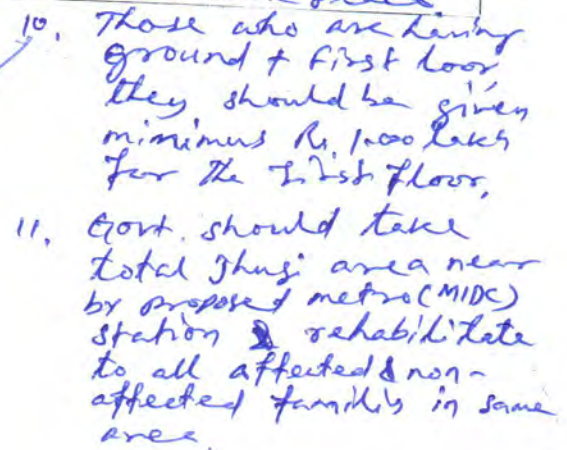 10. Those who are having
ground + first loor
they should be given
minimus Rs. 1.00 lakh
for the First floor,
11. Govt. should take
total Jhugi area near
by proposed metro (MIDC)
station & rehabilitate
to all affected & non-
affected familis in same
area